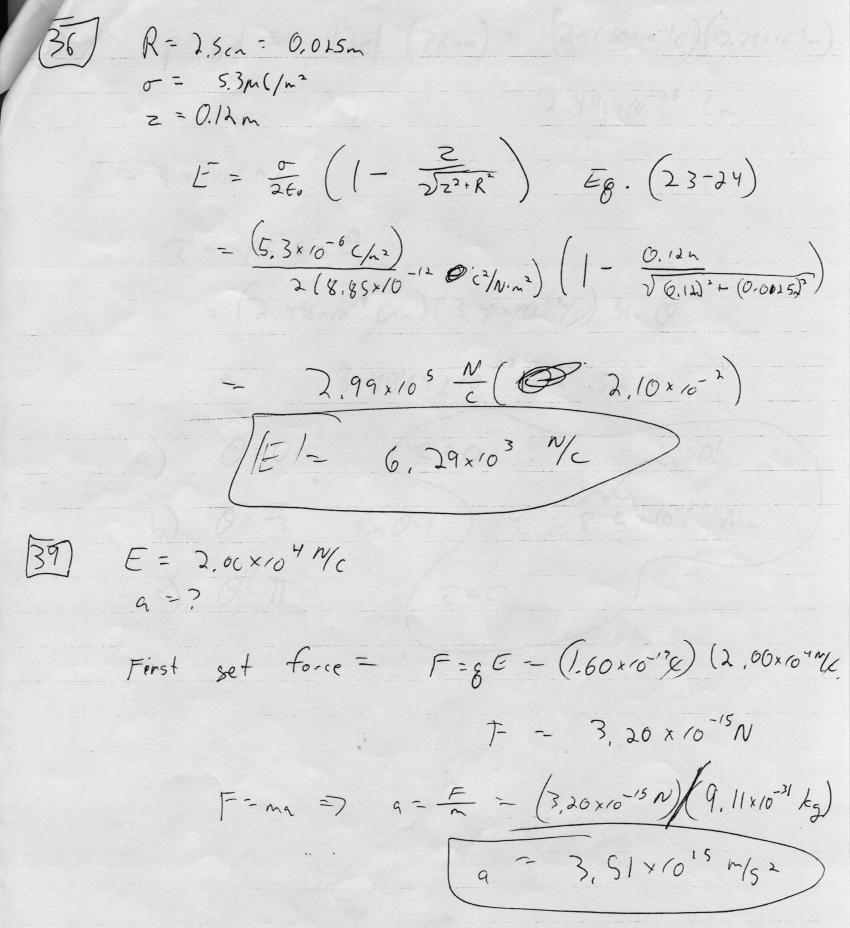 36 R = 2.5cm = 0.025m
σ = 5.3μC/m²
z = 0.12m
E = σ/2ε₀ (1 - z/√(z²+R²)) Eq. (23-24)
= (5.3×10⁻⁶ C/m²)/2(8.85×10⁻¹² C²/N·m²) (1 - 0.12m/√((0.12)² + (0.0025)²))
= 2.99×10⁵ N/C (2.10×10⁻²)
|E| = 6.29×10³ N/C
39 E = 2.00×10⁴ N/C
a = ?
First get force = F = qE = (1.60×10⁻¹⁹C) (2.00×10⁴ N/C
F = 3.20×10⁻¹⁵N
F = ma ⇒ a = F/m = (3.20×10⁻¹⁵ N)/(9.11×10⁻³¹ kg)
a = 3.51×10¹⁵ m/s²